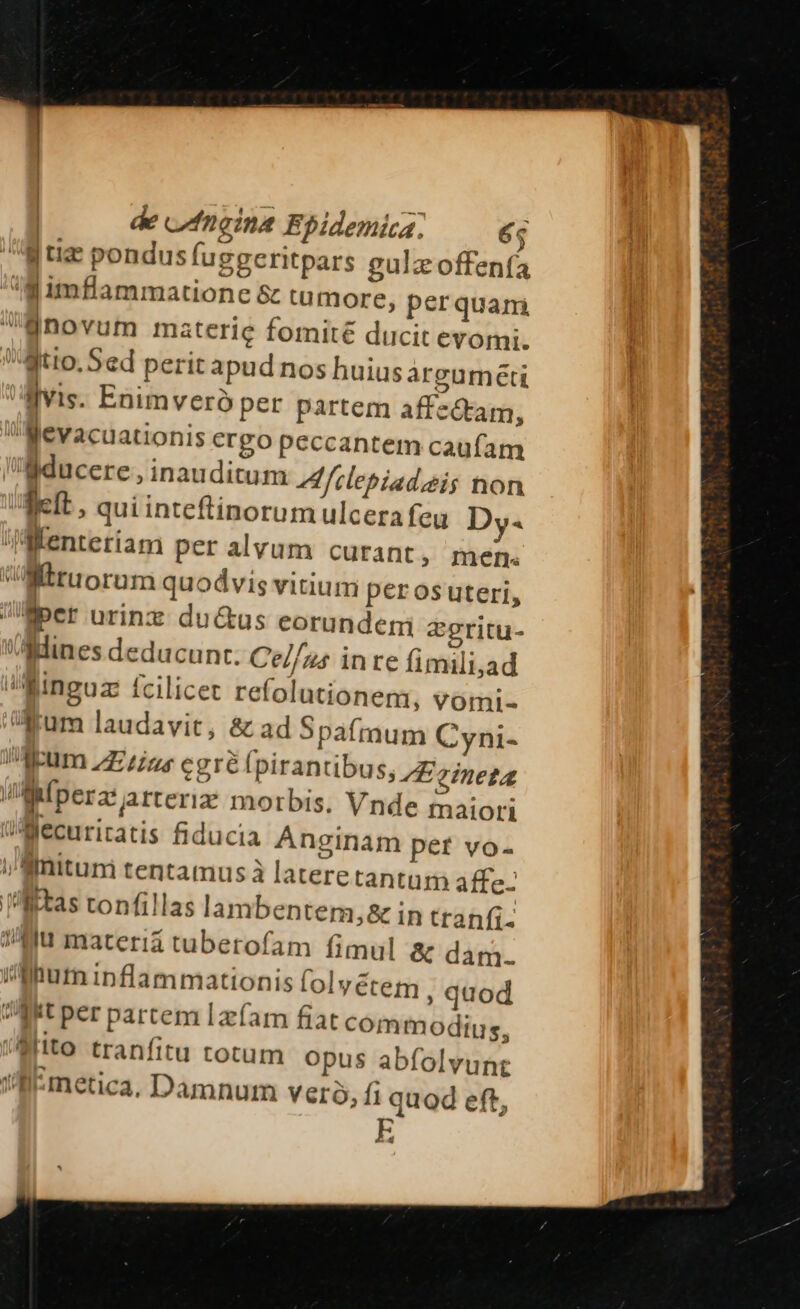 de Angina Epidemica. 65
tiæ pondus ſuggerit pars gulæ offenſa
imflammatione & tumore, per quam
novum materie fomitē ducit evomi-
tio. Sed perit apud nos huius argumēti
vis. Enimverò per partem affectam,
evacuationis ergo peccantem cauſam
ducere, inauditum Aſclepiadæis non
eſt, qui inteſtinorum ulcera ſeu Dy-
ſenteriam per alvum curant, men-
ſtruorum quodvis vitium per os uteri,
per urinæ ductus eorundem ægritu-
dines deducunt. Celſus in re ſimili, ad
linguæ ſcilicet reſolutionem, vomi-
tum laudavit, & ad Spaſmum Cyni-
cum Ætius egrè ſpirantibus, Ægineta
aſperæ arteriæ morbis. Vnde maiori
ſecuritatis fiducia Anginam per vo-
mitum tentamus à latere tantum affe-
ctas tonſillas lambentem, & in tranſi-
tu materiâ tuberoſam ſimul & dam-
num inflammationis ſolvētem, quod
ut per partem læſam fiat commodius,
cito tranſitu totum opus abſolvunt
Emetica. Damnum verò, ſi quod eſt,
E